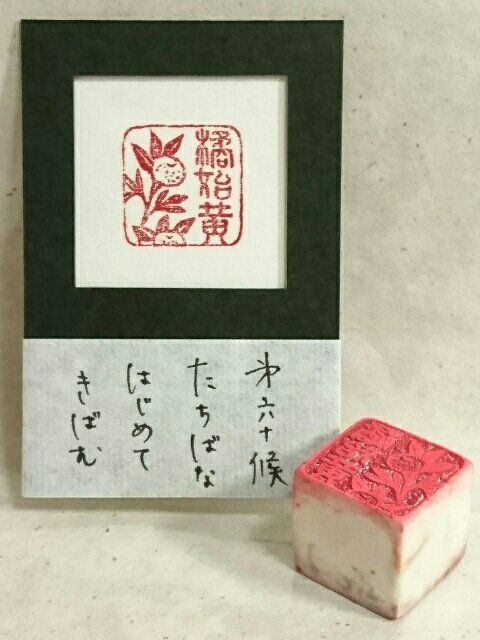 橘始黄
第六十候
たちばな
はじめて
きばむ